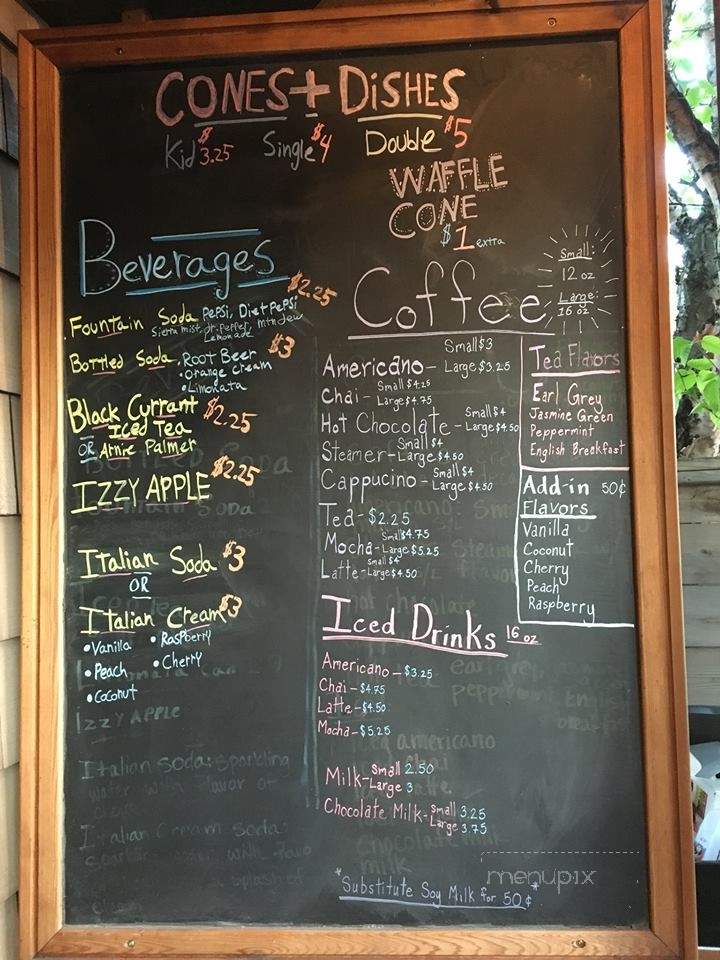 CONES + DiSHES
Kid $3.25 Single $4 Double $5
WAFFLE
CONE
$1 extra
Beverages
$2.25
Fountain Soda Pepsi, Diet Pepsi
Sierra mist, dr. pepper, Mtn dew
Lemonade
Bottled Soda $3
• Root Beer
• Orange Cream
• Limonata
Black Currant $2.25
Iced Tea
OR Arnie Palmer
IZZY APPLE $2.25
Italian Soda $3
OR
Italian Cream $3
• Vanilla • Raspberry
• Peach • Cherry
• Coconut
Coffee
Small:
12 oz
Large:
16 oz
Americano - Small $3
Large $3.25
Chai - Small $4.25
Large $4.75
Hot Chocolate - Small $4
Large $4.50
Steamer - Small $4
Large $4.50
Cappucino - Small $4
Large $4.50
Tea - $2.25
Mocha - Small $4.75
Large $5.25
Latte - Small $4
Large $4.50
Tea Flavors
Earl Grey
Jasmine Green
Peppermint
English Breakfast
Add-in 50¢
Flavors
Vanilla
Coconut
Cherry
Peach
Raspberry
Iced Drinks 16 oz
Americano - $3.25
Chai - $4.75
Latte - $4.50
Mocha - $5.25
Milk - Small 2.50
Large 3
Chocolate Milk - Small 3.25
Large 3.75
*Substitute Soy Milk for 50¢*
IZZY APPLE
Italian Soda: Sparkling
water with flavor of
Italian Cream soda:
iced americano
menupix